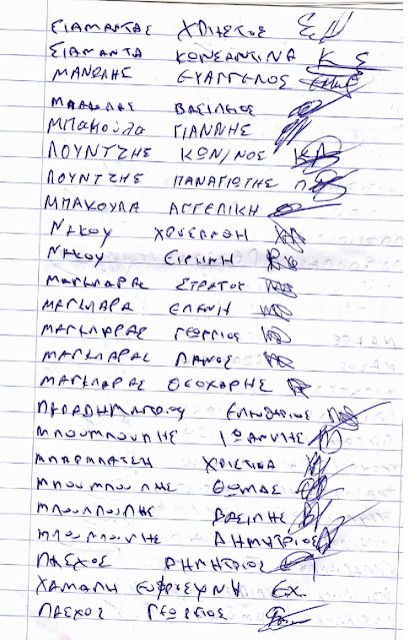 ΣΙΑΜΑΝΤΑΣ ΧΡΗΣΤΟΣ
ΣΙΑΜΑΝΤΑ ΚΩΝΣΑΝΤΙΝΑ Κ Σ
ΜΑΝΩΛΗΣ ΕΥΑΓΓΕΛΟΣ
ΒΑΣΙΛΕΙΟΣ
ΜΠΑΚΟΥΛΑ ΓΙΑΝΝΗΣ
ΛΟΥΝΤΖΗΣ ΚΩΝ/ΝΟΣ
ΛΟΥΝΤΖΗΣ ΠΑΝΑΓΙΩΤΗΣ
ΜΠΑΚΟΥΛΑ ΑΓΓΕΛΙΚΗ
ΝΑΚΟΥ
ΝΑΚΟΥ ΕΙΡΗΝΗ
ΜΑΓΚΛΑΡΑΣ ΣΤΡΑΤΟΣ
ΜΑΓΚΛΑΡΑ ΕΛΕΝΗ
ΜΑΓΚΛΑΡΑΣ ΓΕΩΡΓΙΟΣ
ΜΑΓΚΛΑΡΑΣ ΠΑΝΟΣ
ΜΑΓΚΛΑΡΑΣ ΘΕΟΧΑΡΗΣ
ΠΑΠΑΔΗΜΗΤΡΙΟΥ ΕΛΕΥΘΕΡΙΟΣ
ΜΠΟΥΜΠΟΥΛΗΣ ΙΩΑΝΝΗΣ
ΧΡΙΣΤΙΝΑ
ΜΠΟΥΜΠΟΥΛΗΣ ΘΩΜΑΣ
ΜΠΟΥΜΠΟΥΛΗΣ ΒΑΣΙΛΗΣ
ΜΠΟΥΜΠΟΥΛΗΣ ΔΗΜΗΤΡΙΟΣ
ΠΑΣΧΟΣ ΔΗΜΗΤΡΙΟΣ
ΧΑΜΑΛΗ ΕΥΦΡΟΣΥΝΗ ΕΧ.
ΠΑΣΧΟΣ ΓΕΩΡΓΙΟΣ